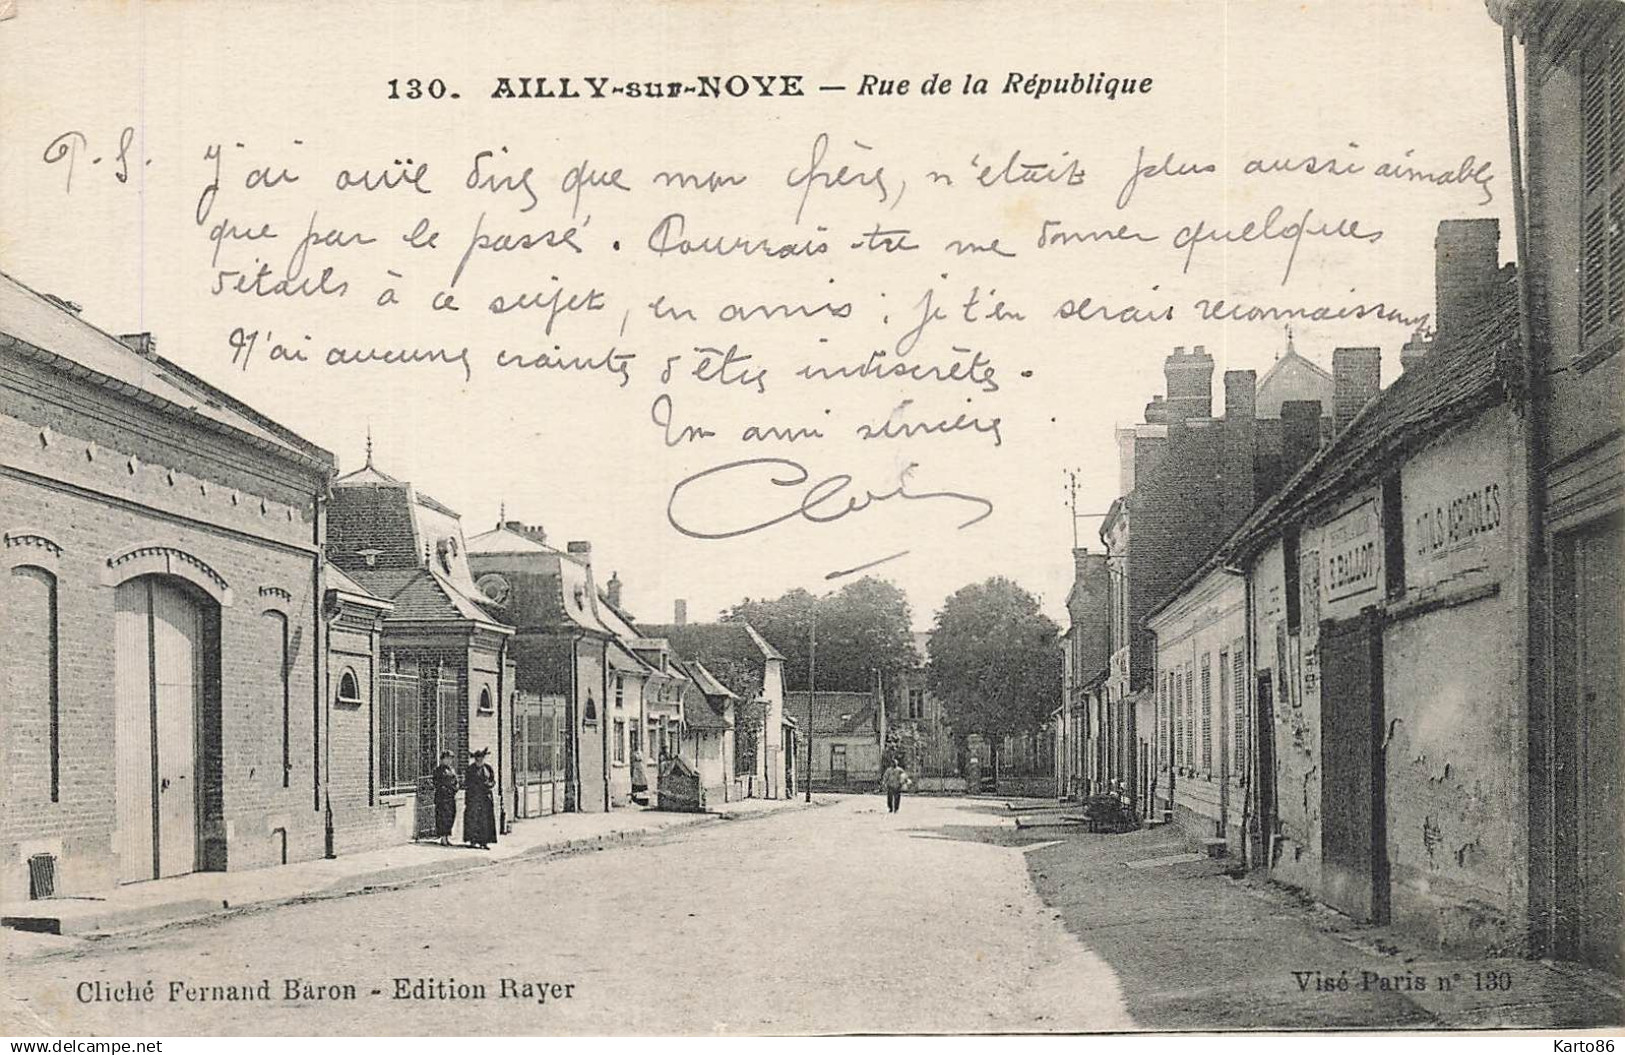 130. AILLY-sur-NOYE — Rue de la République
P.S. J'ai ouïe dire que mon frère, n'était plus aussi aimable
que par le passé. Pourrais-tu me donner quelques
détails à ce sujet, en amis ; je t'en serais reconnaissante
N'ai aucune crainte d'être indiscrète.
Un ami sincère
OUTILS AGRICOLES
G. BALLOT
Cliché Fernand Baron - Edition Rayer
Visé Paris n° 130
delcampe.net
Karto86